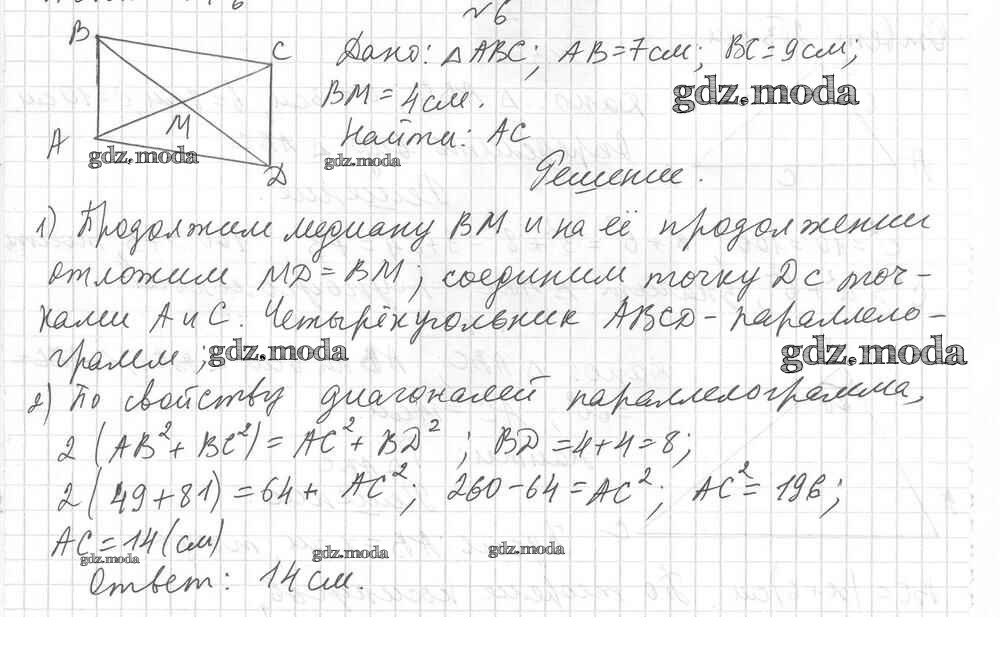 №6
B
C
A
M
D
Дано: △ABC; AB=7см; BC=9см;
BM=4см.
Найти: AC
Решение.
1) Продолжим медиану BM и на её продолжении
отложим MD=BM; соединим точку D с точ-
ками A и C. Четырёхугольник ABCD - параллело-
грамм;
2) По свойству диагоналей параллелограмма,
2(AB²+BC²)=AC²+BD²; BD=4+4=8;
2(49+81)=64+AC²; 260-64=AC²; AC²=196;
AC=14(см)
Ответ: 14см.
gdz.moda
gdz.moda
gdz.moda
gdz.moda
gdz.moda
gdz.moda
gdz.moda
gdz.moda